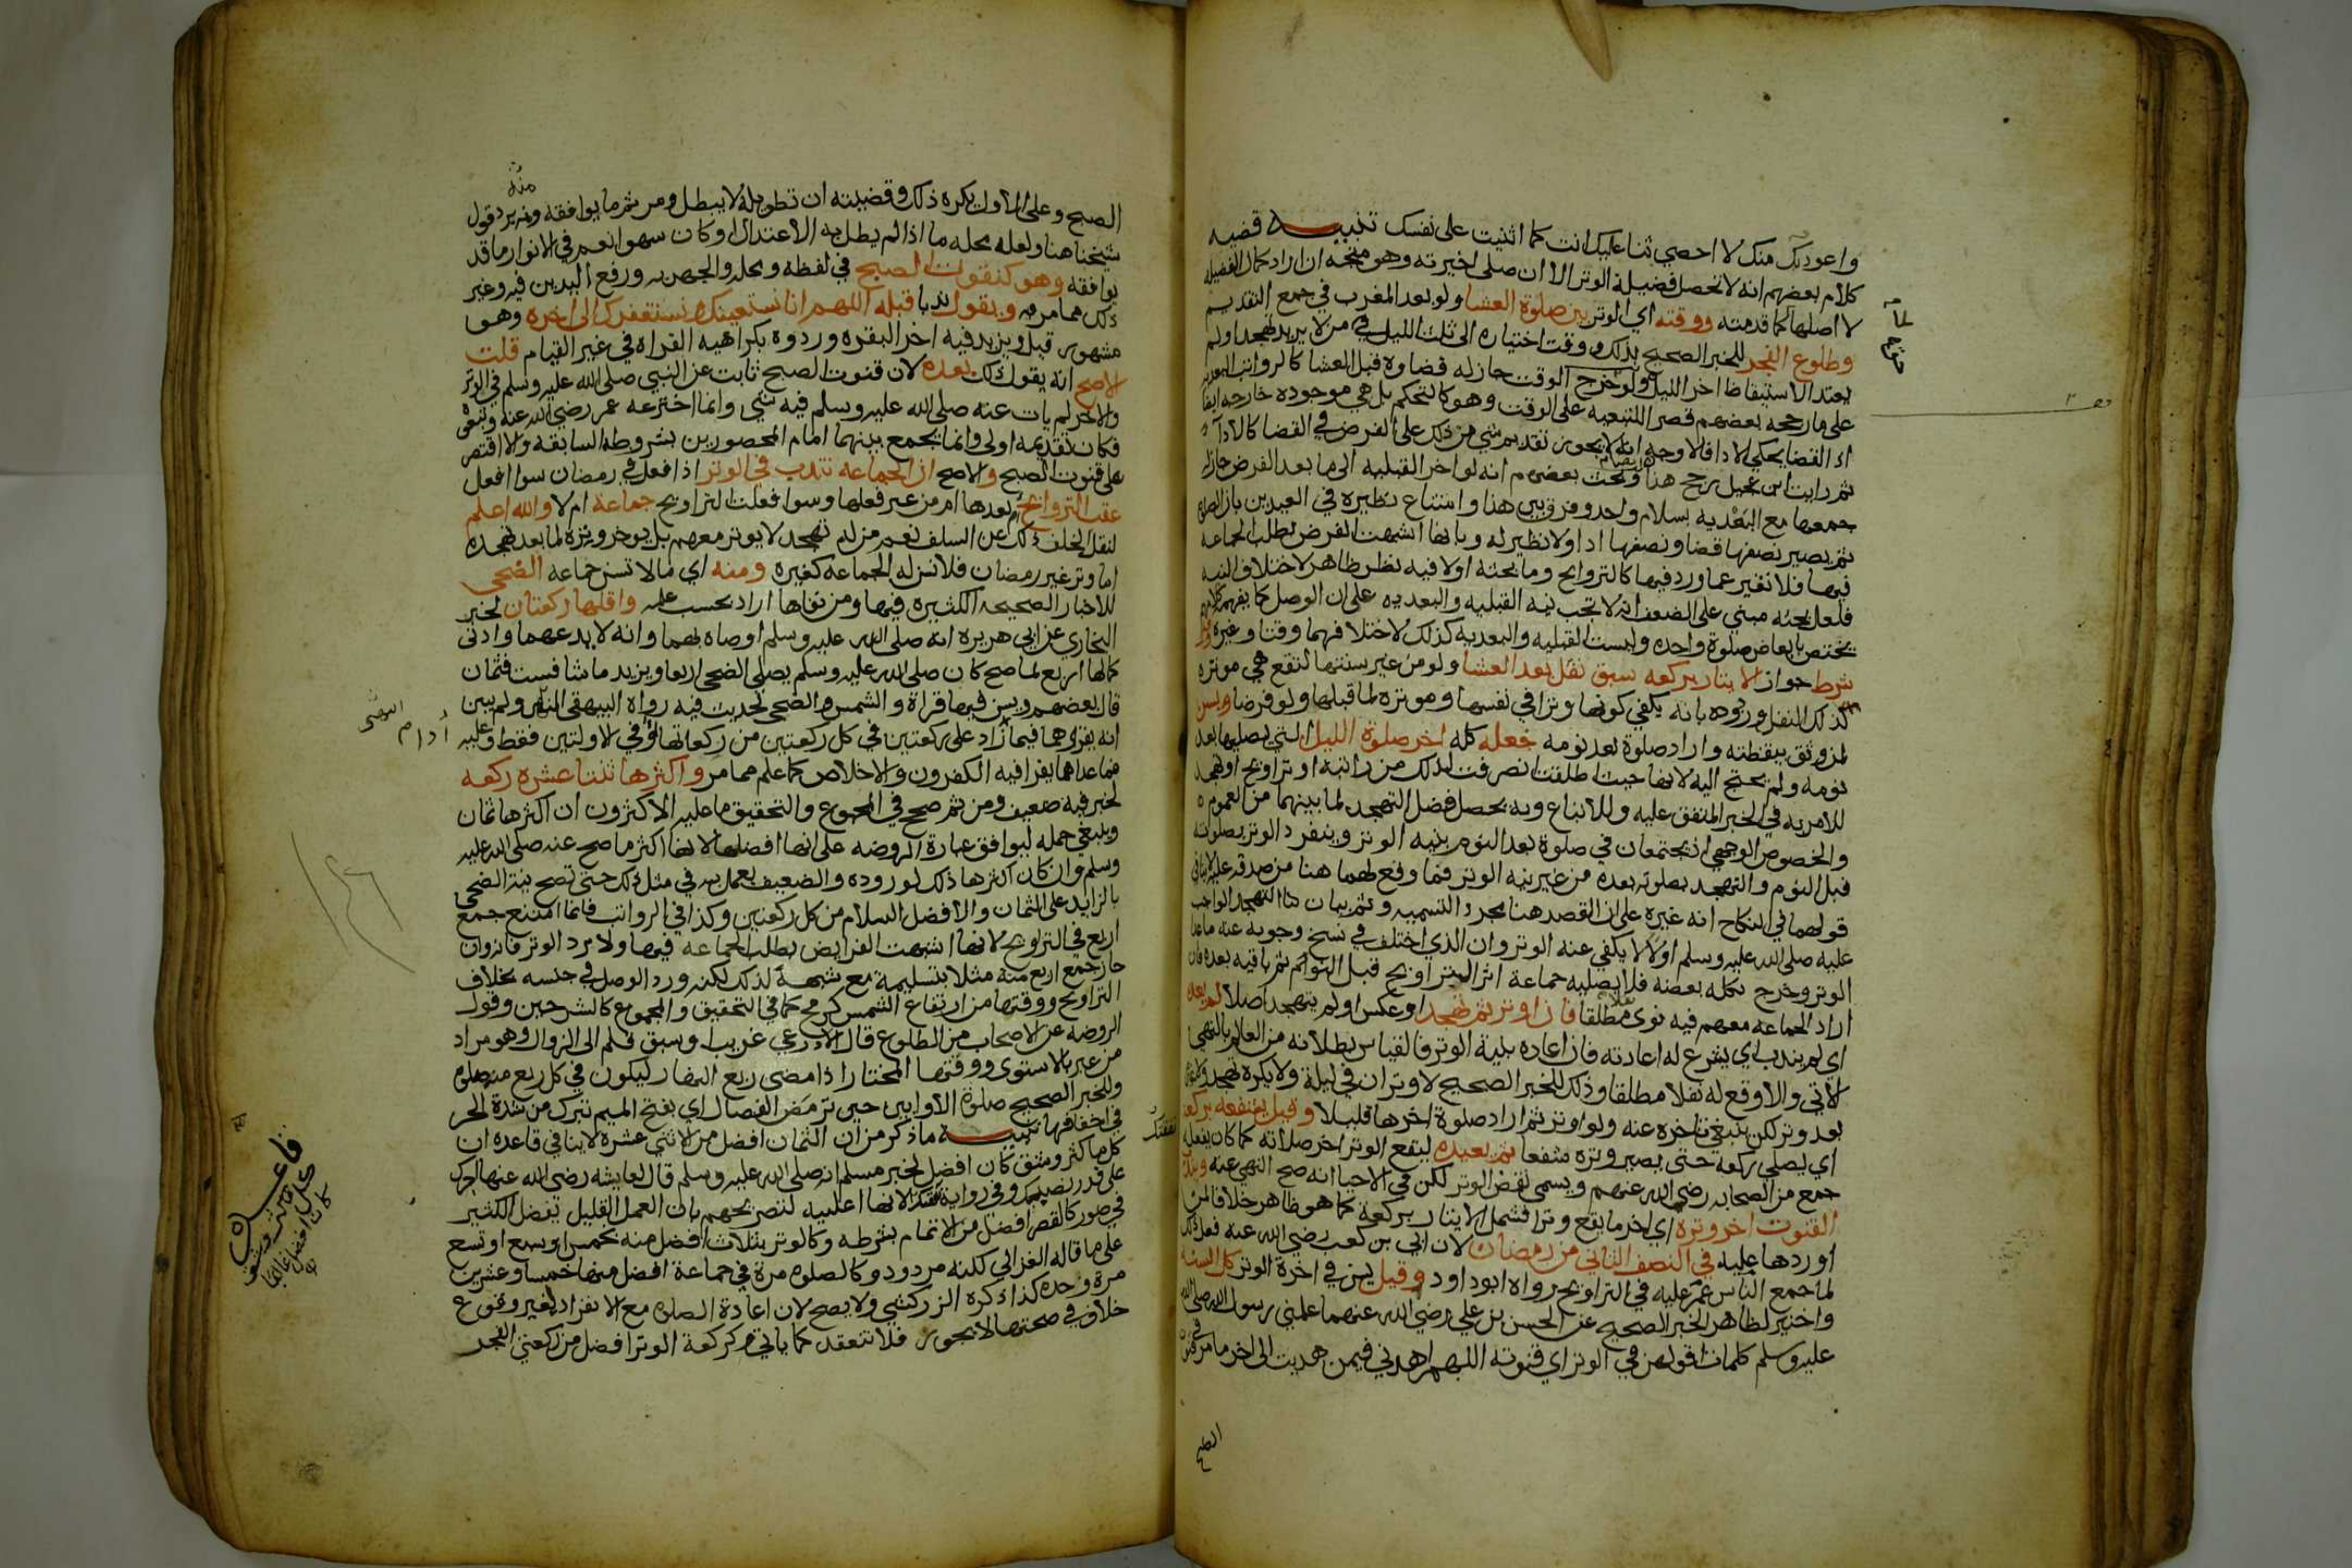 واعوذ بك منك لا احصي ثنا عليك انت كما اثنيت على نفسك تنبيه قضيه
كلام بعضهم انه لا تحصل فضيلة الوتر الا ان صلى اخيرته وهو متجه ان اراد كمال الفضيله
لا اصلها كما قدمته ووقته اي الوتر بين صلوة العشا ولو بعد المغرب في جمع التقديم
وطلوع الفجر للخبر الصحيح بذلك ووقت اختياره الى ثلث الليل في من لا يريد تهجدا ولم
يعتد الاستيقاظ اخر الليل ولو خرج الوقت جاز له قضاوه قبل العشا كالرواتب البعديه
على ما رجحه بعضهم قصرا للتبعيه على الوقت وهو كالتحكم بل هي موجوده خارجه ايضا
اذ القضا يحكي الادا فالاوجه انه لا يجوز تقديم شي من ذلك على الفرض في القضا كالادا
ثم رايت ابن عجيل رجح هذا وبحث بعضهم انه لو اخر القبليه الى ما بعد الفرض جاز له
جمعها مع البعديه بسلام واحد وفرق بين هذا وامتناع نظيره في العيدين بان الصلوة
ثم يصير نصفها قضا ونصفها ادا ولا نظير له وبانها اشبهت الفرض بطلب الجماعه
فيها فلا تغير عما ورد فيها كالتراويح وما بحثه اولا فيه نظر ظاهر لاختلاف النيه
فلعل بحثه مبني على الضعف انه لا تجب نيه القبليه والبعديه على ان الوصل كما يفهم كلامهم
يختص بابعاض صلوة واحده وليست القبليه والبعديه كذلك لاختلافهما وقتا وغيره وقيل
شرط جواز الايتار بركعه سبق نفل بعد العشا ولو من غير سنتها لتقع هي موتره
لذلك النفل وردوه بانه يكفي كونها وترا في نفسها وموتره لما قبلها ولو فرضا ويسن
لمن وثق بيقظته واراد صلوة بعد نومه جعله كله اخر صلوة الليل التي يصليها بعد
نومه ولم يحتج اليه لانها حيث اطلقت انصرفت لذلك من راتبه او تراويح او تهجد
للامر به في الخبر المتفق عليه وللاتباع وبه يحصل فضل التهجد لما بينهما من العموم
والخصوص الوجهي اذ يجتمعان في صلوة بعد النوم بنيه الوتر وينفرد الوتر بصلوته
قبل النوم والتهجد بصلوته بعده من غير نيه الوتر فما وقع لهما هنا من صدقه عليه لا ينافي
قولهما في النكاح انه غيره على ان القصد هنا مجرد التسميه وثم بيان هذا التهجد الواجب
عليه صلى الله عليه وسلم اولا لا يكفي عنه الوتر وان الذي اختلف في نسخ وجوبه عنه ماعدا
الوتر وخرج بكله بعضه فلا يصليه جماعة اثر التراويح قبل النوم ثم باقيه بعده فان
اراد الجماعه معهم فيه نوى نفلا مطلقا فان اوتر ثم تهجد او عكس او لم يتهجد اصلا لم يعده
اي لم يندب اي يشرع له اعادته فان اعاده بنية الوتر فالقياس بطلانه من العالم بالنهي
الاتي والا وقع له نفلا مطلقا وذلك للخبر الصحيح لا وتران في ليلة ولا يكره تهجد
بعد وتر لكن ينبغي تاخره عنه ولو اوتر ثم اراد صلوة اخرها قليلا وقيل يشفعه بركعه
اي يصلي ركعه حتى يصير وتره شفعا ثم يعيده ليقع الوتر اخر صلاته كما كان يفعله
جمع من الصحابه رضي الله عنهم ويسمى نقض الوتر لكن في الاحيا انه صح النهي عنه ويندب
القنوت اخر وتره اي اخر ما يقع وترا فشمل الايتار بركعة كما هو ظاهر خلافا لمن
اوردها عليه في النصف الثاني من رمضان لان ابي بن كعب رضي الله عنه فعل ذلك
لما جمع الناس عمر عليه في التراويح رواه ابو داود وقيل يسن في اخرة الوتر كل السنه
واختير لظاهر الخبر الصحيح عن الحسن بن علي رضي الله عنهما علمني رسول الله صلى الله
عليه وسلم كلمات اقولهن في الوتر اي قنوته اللهم اهدني فيمن هديت الى اخر ما مر في قنوت
الصبح
الصبح وعلى الاول يكره ذلك وقضيته ان تطويله لا يبطل ومر ثم ما يوافقه ومنه يرد قول
شيخنا هنا ولعله محله ما اذا لم يطل به الاعتدال او كان سهوا نعم في الانوار ما قد
يوافقه وهو كقنوت الصبح في لفظه ومحله والجهر به ورفع اليدين فيه وغير
ذلك مما مر ثم ويقول ندبا قبله اللهم انا نستعينك ونستغفرك الى اخره وهو
مشهور قيل ويزيد فيه اخر البقره وردوه بكراهيه القراه في غير القيام قلت
الاصح انه يقول ذلك بعده لان قنوت الصبح ثابت عن النبي صلى الله عليه وسلم في الوتر
والاخر لم يات عنه صلى الله عليه وسلم فيه شي وانما اخترعه عمر رضي الله عنه وتبعوه
فكان تقديمه اولى وانما يجمع بينهما امام المحصورين بشروطه السابقه والا اقتصر
على قنوت الصبح والاصح ان الجماعه تندب في الوتر اذا فعل في رمضان سوا افعل
عقب التراويح ام بعدها ام من غير فعلها وسوا فعلت التراويح جماعة ام لا والله اعلم
لنقل الخلف ذلك عن السلف نعم من له تهجد لا يوتر معهم بل يوخر وتره لما بعد تهجده
اما وتر غير رمضان فلا تسن له الجماعه كغيره ومنه اي ما لا تسن جماعه الضحى
للاخبار الصحيحه الكثيره فيها ومن نفاها اراد بحسب علمه واقلها ركعتان لخبر
البخاري عن ابي هريره انه صلى الله عليه وسلم اوصاه بهما وانه لا يدعهما وادنى
كمالها اربع لما صح كان صلى الله عليه وسلم يصلي الضحى اربعا ويزيد ما شا فست فثمان
قال بعضهم ويسن فيها قراة والشمس والضحى لحديث فيه رواه البيهقي ولم يبين
انه يقراهما فيما زاد على ركعتين في كل ركعتين من ركعاتها او في الاولتين فقط وعليه
فما عداهما يقرا فيه الكفرون والاخلاص كما علم مما مر واكثرها ثنتا عشره ركعه
لخبر فيه ضعيف ومن ثم صحح في المجموع والتحقيق ما عليه الاكثرون ان اكثرها ثمان
وينبغي حمله ليوافق عبارة الروضه على انها افضلها لانها اكثر ما صح عنه صلى الله عليه
وسلم وان كان اكثرها ذلك لوروده والضعيف يعمل به في مثل ذلك حتى تصح نية الضحى
بالزايد على الثمان والافضل السلام من كل ركعتين وكذا في الرواتب فانما امتنع جمع
اربع في التراويح لانها اشبهت الفرايض بطلب الجماعه فيها ولا يرد الوتر فانه وان
جاز جمع اربع منه مثلا بتسليمة مع شبهه لذلك لكنه ورد الوصل في جنسه بخلاف
التراويح ووقتها من ارتفاع الشمس كرمح كما في التحقيق والمجموع كالشرحين وقول
الروضه عن الاصحاب من الطلوع قال الاذرعي غريب او سبق قلم الى الزوال وهو مراد
من عبر بالاستوى ووقتها المختار اذا مضى ربع النهار ليكون في كل ربع منه صلوة
وللخبر الصحيح صلوة الاوابين حين ترمض الفصال اي بفتح الميم تبرك من شدة الحر
في اخفافها تنبيه ما ذكر من ان الثمان افضل من الاثني عشره لا ينافي قاعده ان
كل ما كثر وشق كان افضل لخبر مسلم انه صلى الله عليه وسلم قال لعايشه رضي الله عنها اجرك
على قدر نصبك وفي رواية نفقتك لانها اغلبيه لتصريحهم بان العمل القليل يفضل الكثير
في صور كالقصر افضل من الاتمام بشرطه وكالوتر بثلاث افضل منه بخمس او سبع او تسع
على ما قاله الغزالي لكنه مردود وكالصلوه مرة في جماعة افضل منها خمسا وعشرين
مرة وحده كذا ذكره الزركشي ولا يصح لان اعادة الصلوه مع الانفراد لغير وقوع
خلاف في صحتها لا يجوز فلا تنعقد كما ياتي وكركعة الوتر افضل من ركعتي الفجر
قاعده
كل ما كثر وشق
كان افضل غالبا